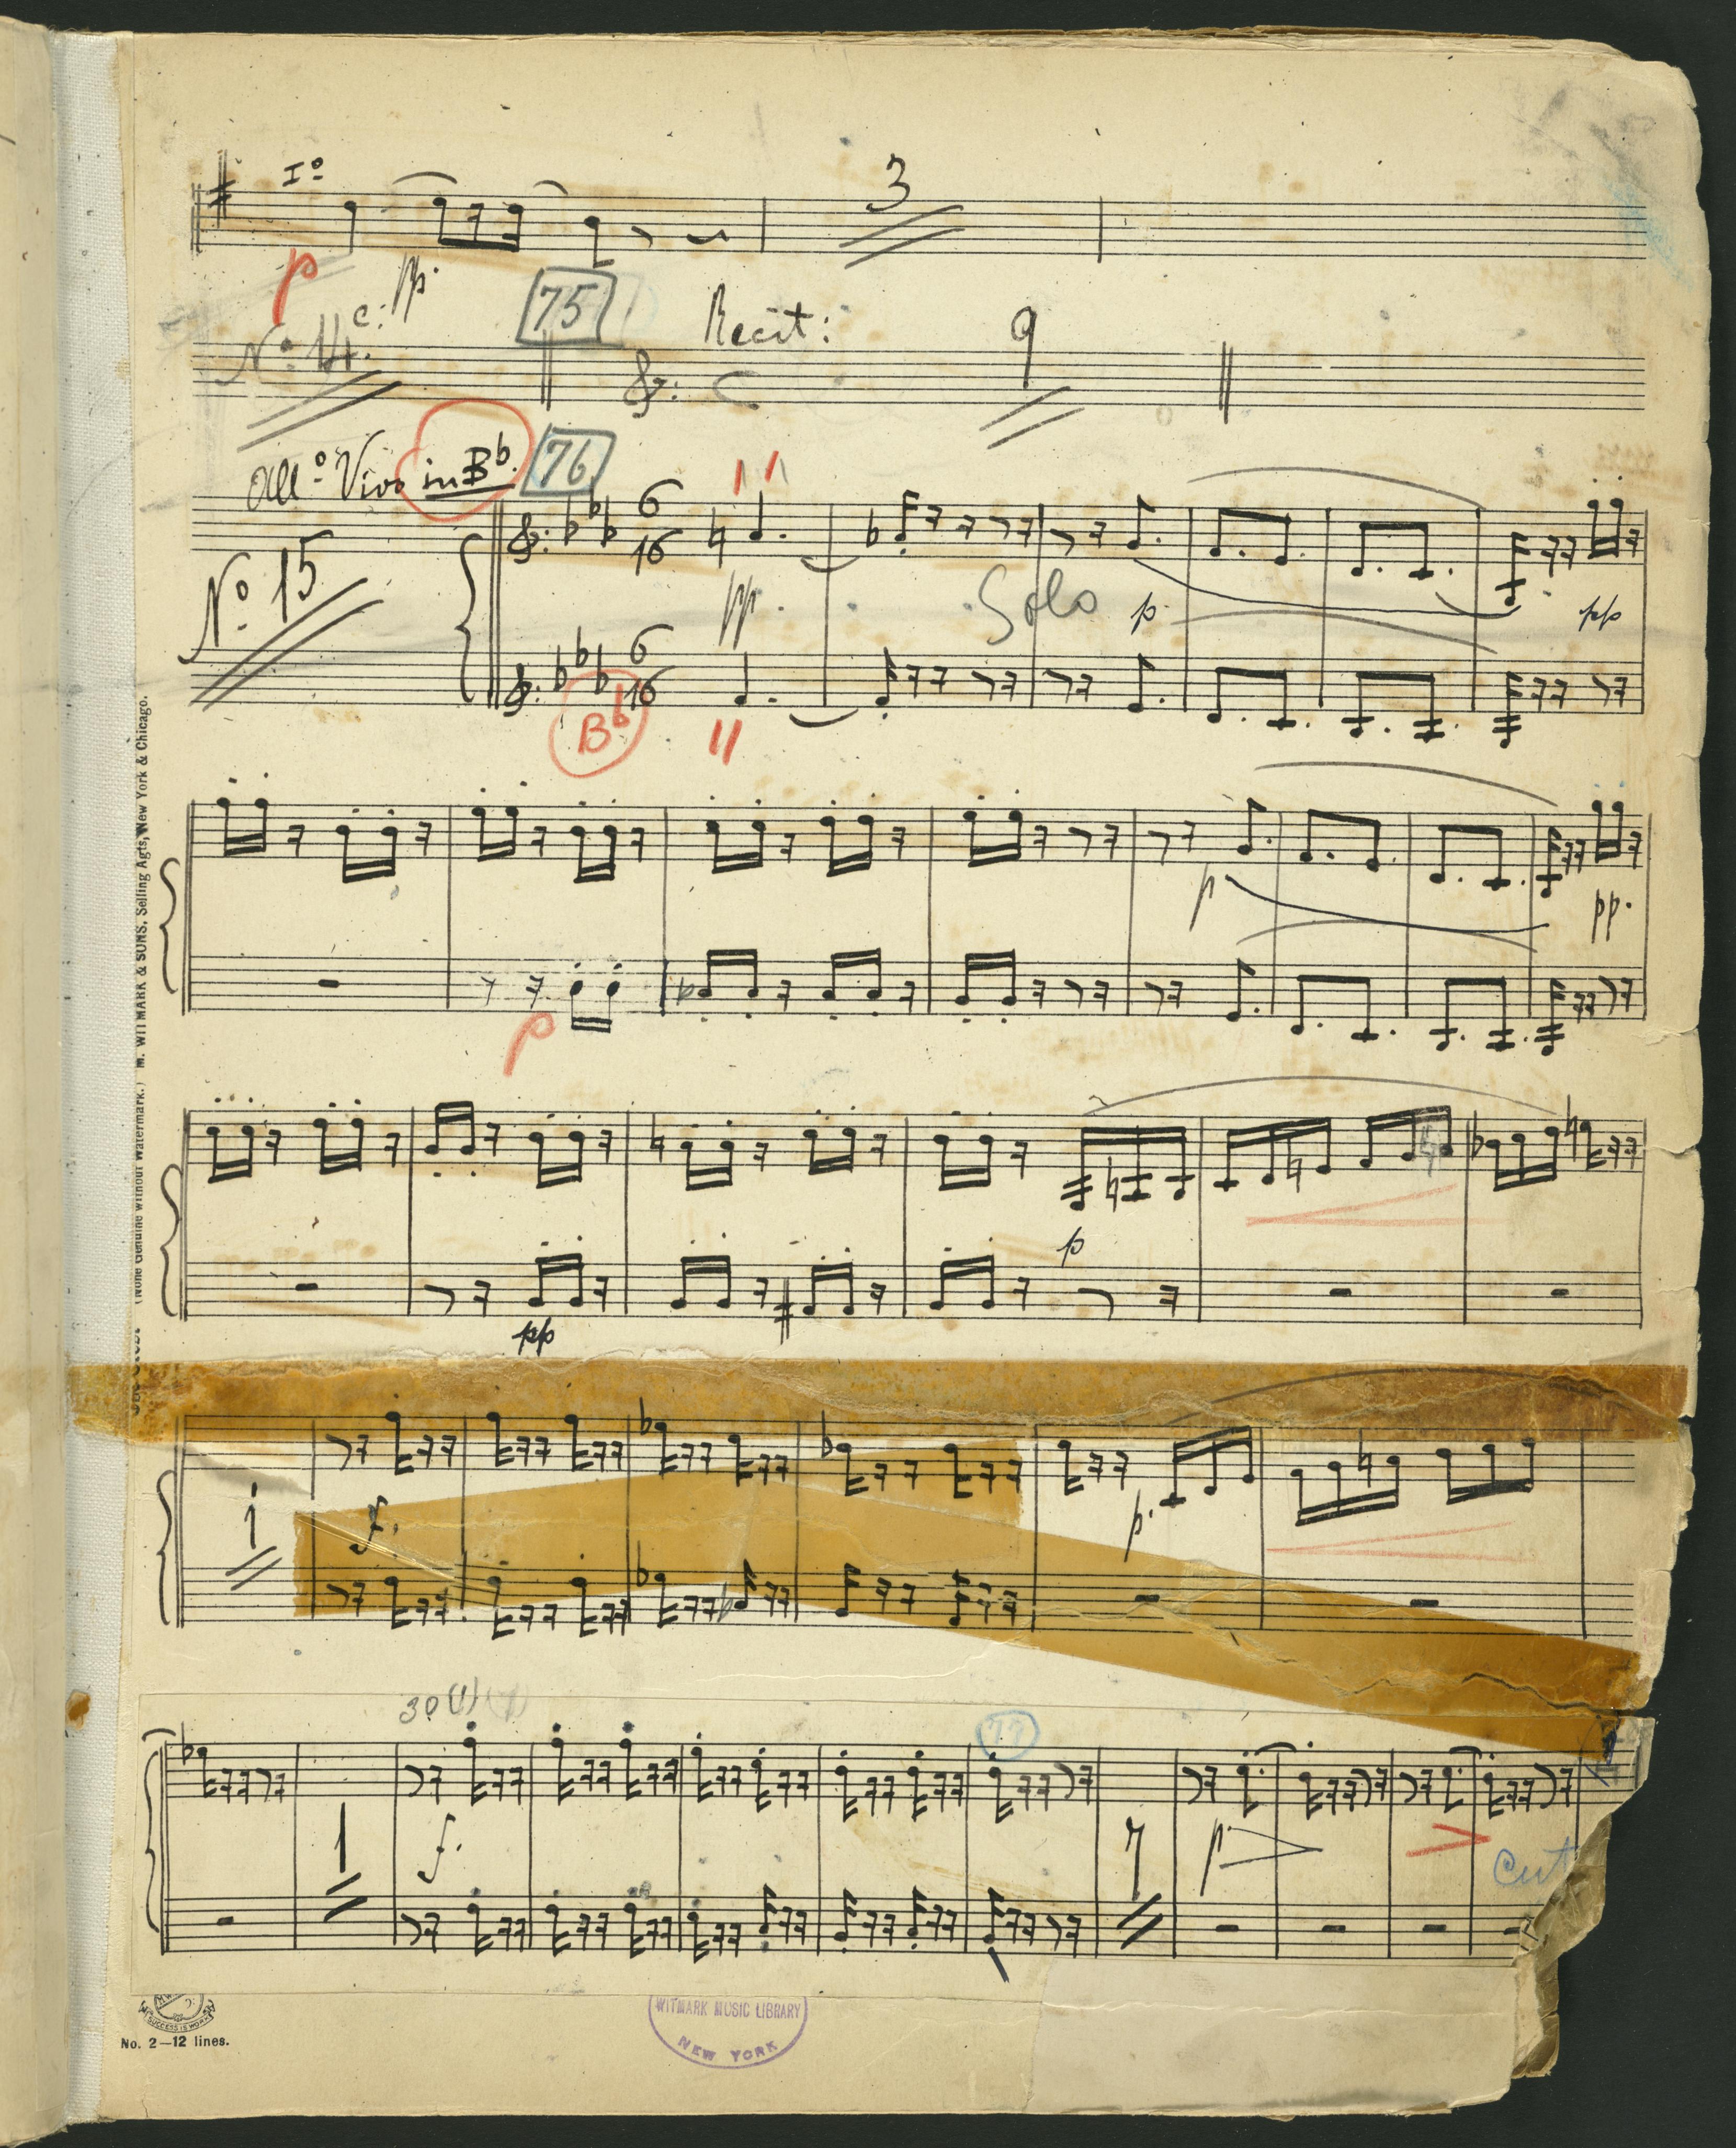 Iº
3
p
pp.
75
Recit:
9
Nº 14 c:
C
Allº Vivo in Bb.
76
6
16
Nº 15
pp.
Solo
p
pp
6
16
Bb
p
pp.
p
p
pp
1
f.
p.
30 (1)
77
1
f.
7
p
Cut
(None Genuine Without Watermark.) M. WITMARK & SONS, Selling Agts, New York & Chicago.
SUCCESS IS WORK
No. 2—12 lines.
WITMARK MUSIC LIBRARY
NEW YORK